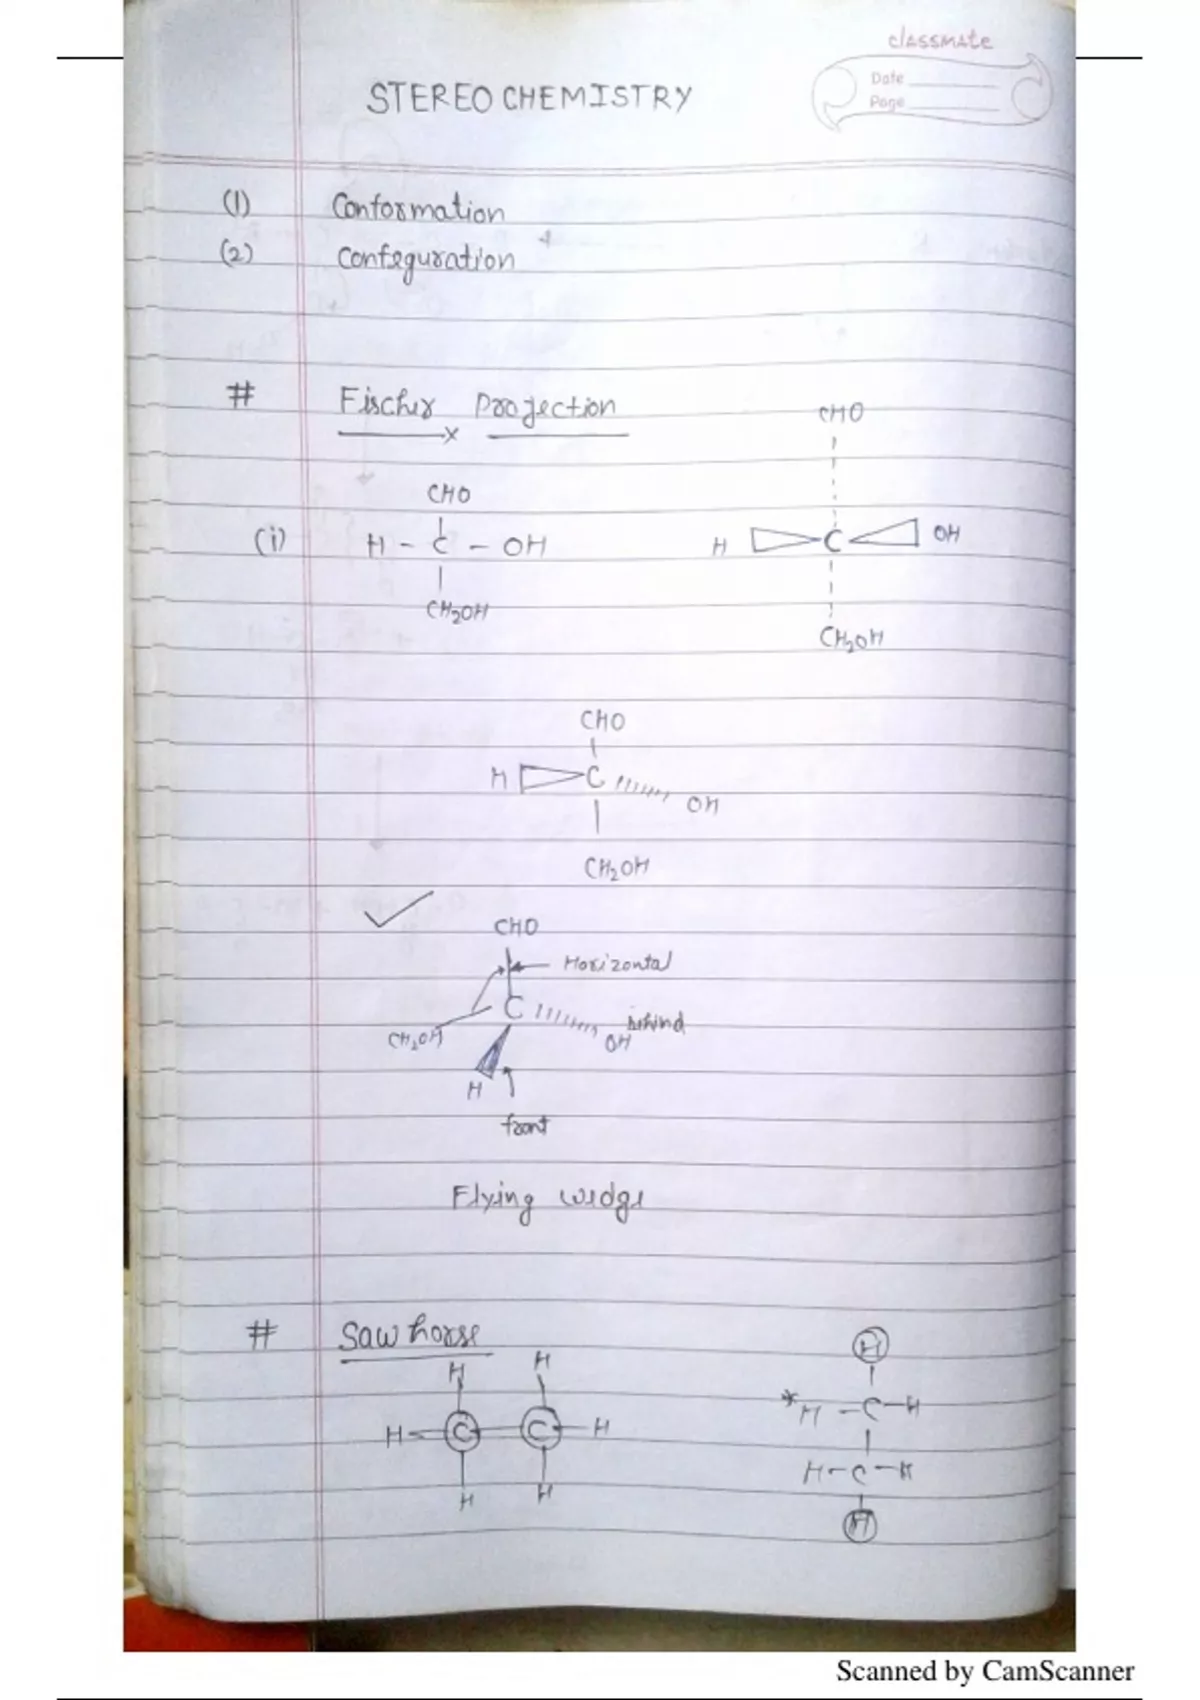 classmate
Date
Page
STEREO CHEMISTRY
(1) Conformation
(2) Confeguration
# Fischer Projection
CHO
CHO
(i) H - C - OH
H C OH
CH2OH
CH2OH
CHO
H C OH
CH2OH
CHO
Horizontal
C
CH2OH OH behind
H
front
Flying wedge
# Saw horse
H H
H C C H
H H
H
*H - C - H
H - C - H
H
Scanned by CamScanner